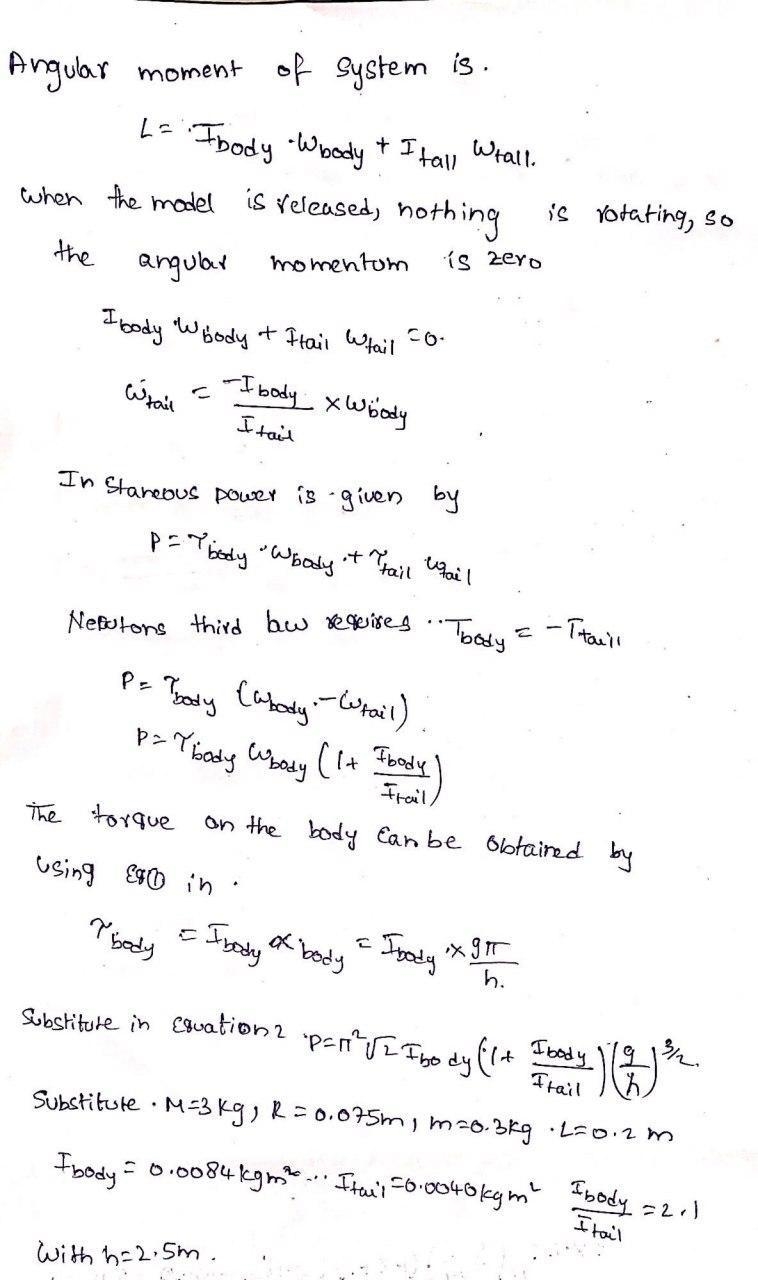 Angular moment of system is.
L = I body · ω body + I tall ω tall.
when the model is released, nothing is rotating, so
the angular momentum is zero
I body ω body + I tail ω tail = 0.
ω tail = -I body / I tail × ω body
In Staneous power is given by
P = τ body · ω body + τ tail ω tail
Newtons third law requires τ body = - τ tail
P = τ body (ω body - ω tail)
P = τ body ω body (1 + I body / I tail)
The torque on the body can be obtained by
using Eq① in .
τ body = I body α body = I body × gπ / h.
Substitute in equation 2 P = π²√2 I body (1 + I body / I tail) (g / h)^3/2.
Substitute . M=3 kg, R = 0.075m, m=0.3kg . L=0.2 m
I body = 0.0084 kgm² ... I tail = 0.0040 kg m² I body / I tail = 2.1
With h=2.5m .